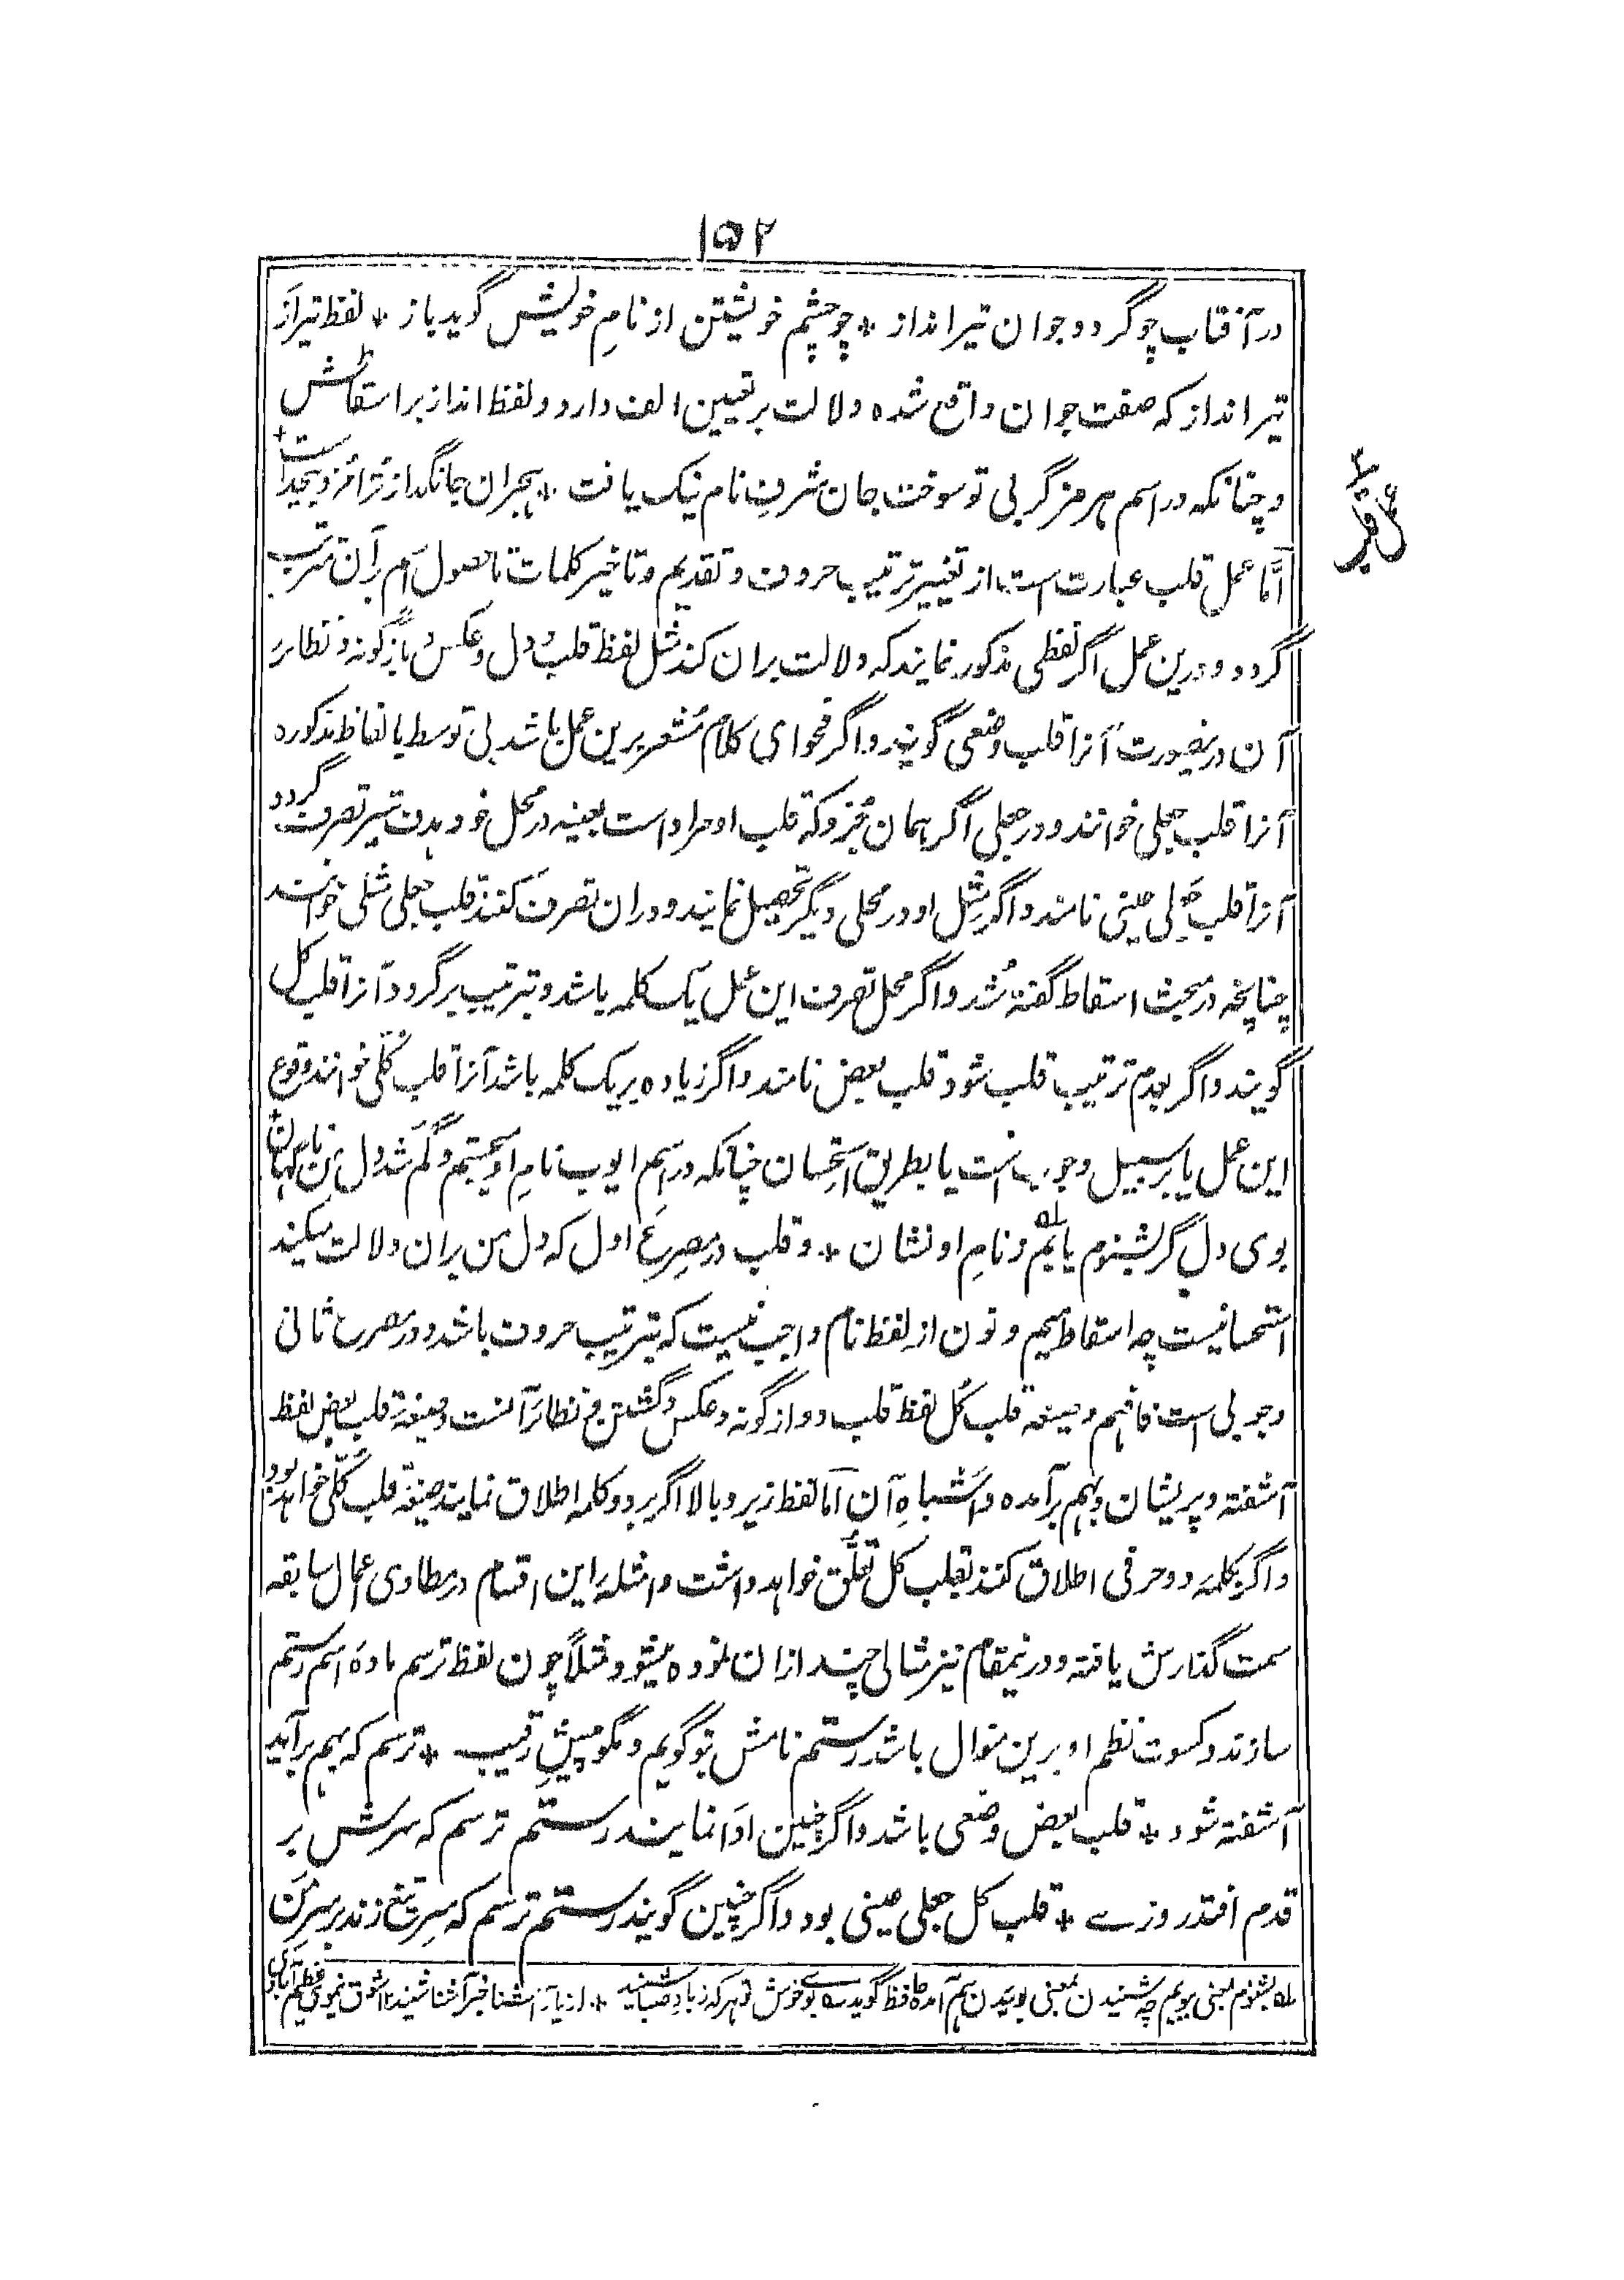 ۱۵۲
در آفتاب چو گردد جوان تیر انداز * چو چشم خویشتن از نامِ خویش گوید باز * لفظ تیر از
تیر انداز که صفت جوان واقع شده دلالت بر تعیین الف دارد و لفظ انداز بر اسقاطش
و چنانکه در اسم هرمز گر بی تو سوخت جان شرفِ نام نیک یافت * هجران جانگداز ترا مزد بیحد است *
عمل قلب
امّا عمل قلب عبارت ست از تغییر ترتیب حروف و تقدیم و تاخیر کلمات تا حصول اسم بر آن مترتب
گردد و درین عمل اگر لفظی مذکور نمایند که دلالت بران کند مثل لفظ قلب و دل و عکس و باژگونه و نظائر
آن درینصورت آنرا قلب وضعی گویند و اگر فحوای کلام مُشعر برین عمل باشد بی توسط یا الفاظ مذکوره
آنرا قلب جعلی خوانند و در جعلی اگر همان جزو که قلب او مراد است بعینه در محل خود هدف تیر تصرف گردد
آنرا قلب جعلی عینی نامند و اگر مِثل او در محلی دیگر تحصیل نمایند و دران تصرف کنند قلب جعلی مثلی خوانند
چنانچه در مبحث اسقاط گفته شُد و اگر محل تصرف این عمل یک کلمه باشد و بترتیب برگردد آنرا قلب کل
گویند و اگر بعدم ترتیب قلب شود قلب بعض نامند و اگر زیاده بر یک کلمه باشد آنرا قلب کُلّی خوانند و وقوع
این عمل یا بر سبیل وجوب ست یا بطریق استحسان چنانکه در اسمِ ایوب نامِ او جستم و گم شد دل من ناگهان *
بوی دل گر بشنوم یابم ز نامِ او نشان * و قلب در مصرعِ اول که دل من بران دلالت میکند
استحسانیست چه اسقاط میم و نون از لفظ نام واجب نیست که بترتیب حروف باشد و در مصرع ثانی
وجوبی است فافهم و صیغه قلب کُل لفظ قلب و واژگونه و عکس و گشتن و نظائر آنست و صیغهٔ قلب بعض لفظ
آشفته و پریشان و بهم برآمده و اشباهِ آن امّا لفظ زیر و بالا اگر بر دو کلمه اطلاق نمایند صیغهٔ قلب کُلّی خواهد بود
و اگر بکلمه دو حرفی اطلاق کنند بقلب کل تعلّق خواهد داشت و امثلهٔ این اقسام در مطاوی اعمال سابقه
سمت گذارش یافته و درینمقام نیز مثالی چند ازان نموده میشود مثلاً چون لفظ ترسم مادهٔ اسم رستم
سازند و کسوت نظم او برین منوال باشد رستم نامش بتو گویم و مگو پیشِ رقیب * ترسم که بهم برآید
آشفته شود * قلب بعض وضعی باشد و اگر چنین ادا نمایند رستم ترسم که سرش بر
قدم افتد روزے * قلب کل جعلی عینی بود و اگر چنین گویند رستم ترسم که سرِ تیغ زند بر سرِ من
بشنوم بمعنی بویم چه شنیدن بمعنی بوییدن هم آمده حافظ گوید بوی خوش تو هر که ز باد صبا شنید * از یار آشنا خبر آشنا شنید